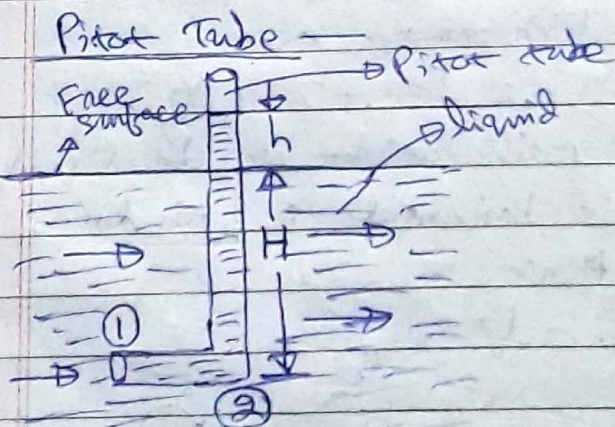 Pitot Tube
Pitot tube
Free
surface
h
liquid
H
1
2